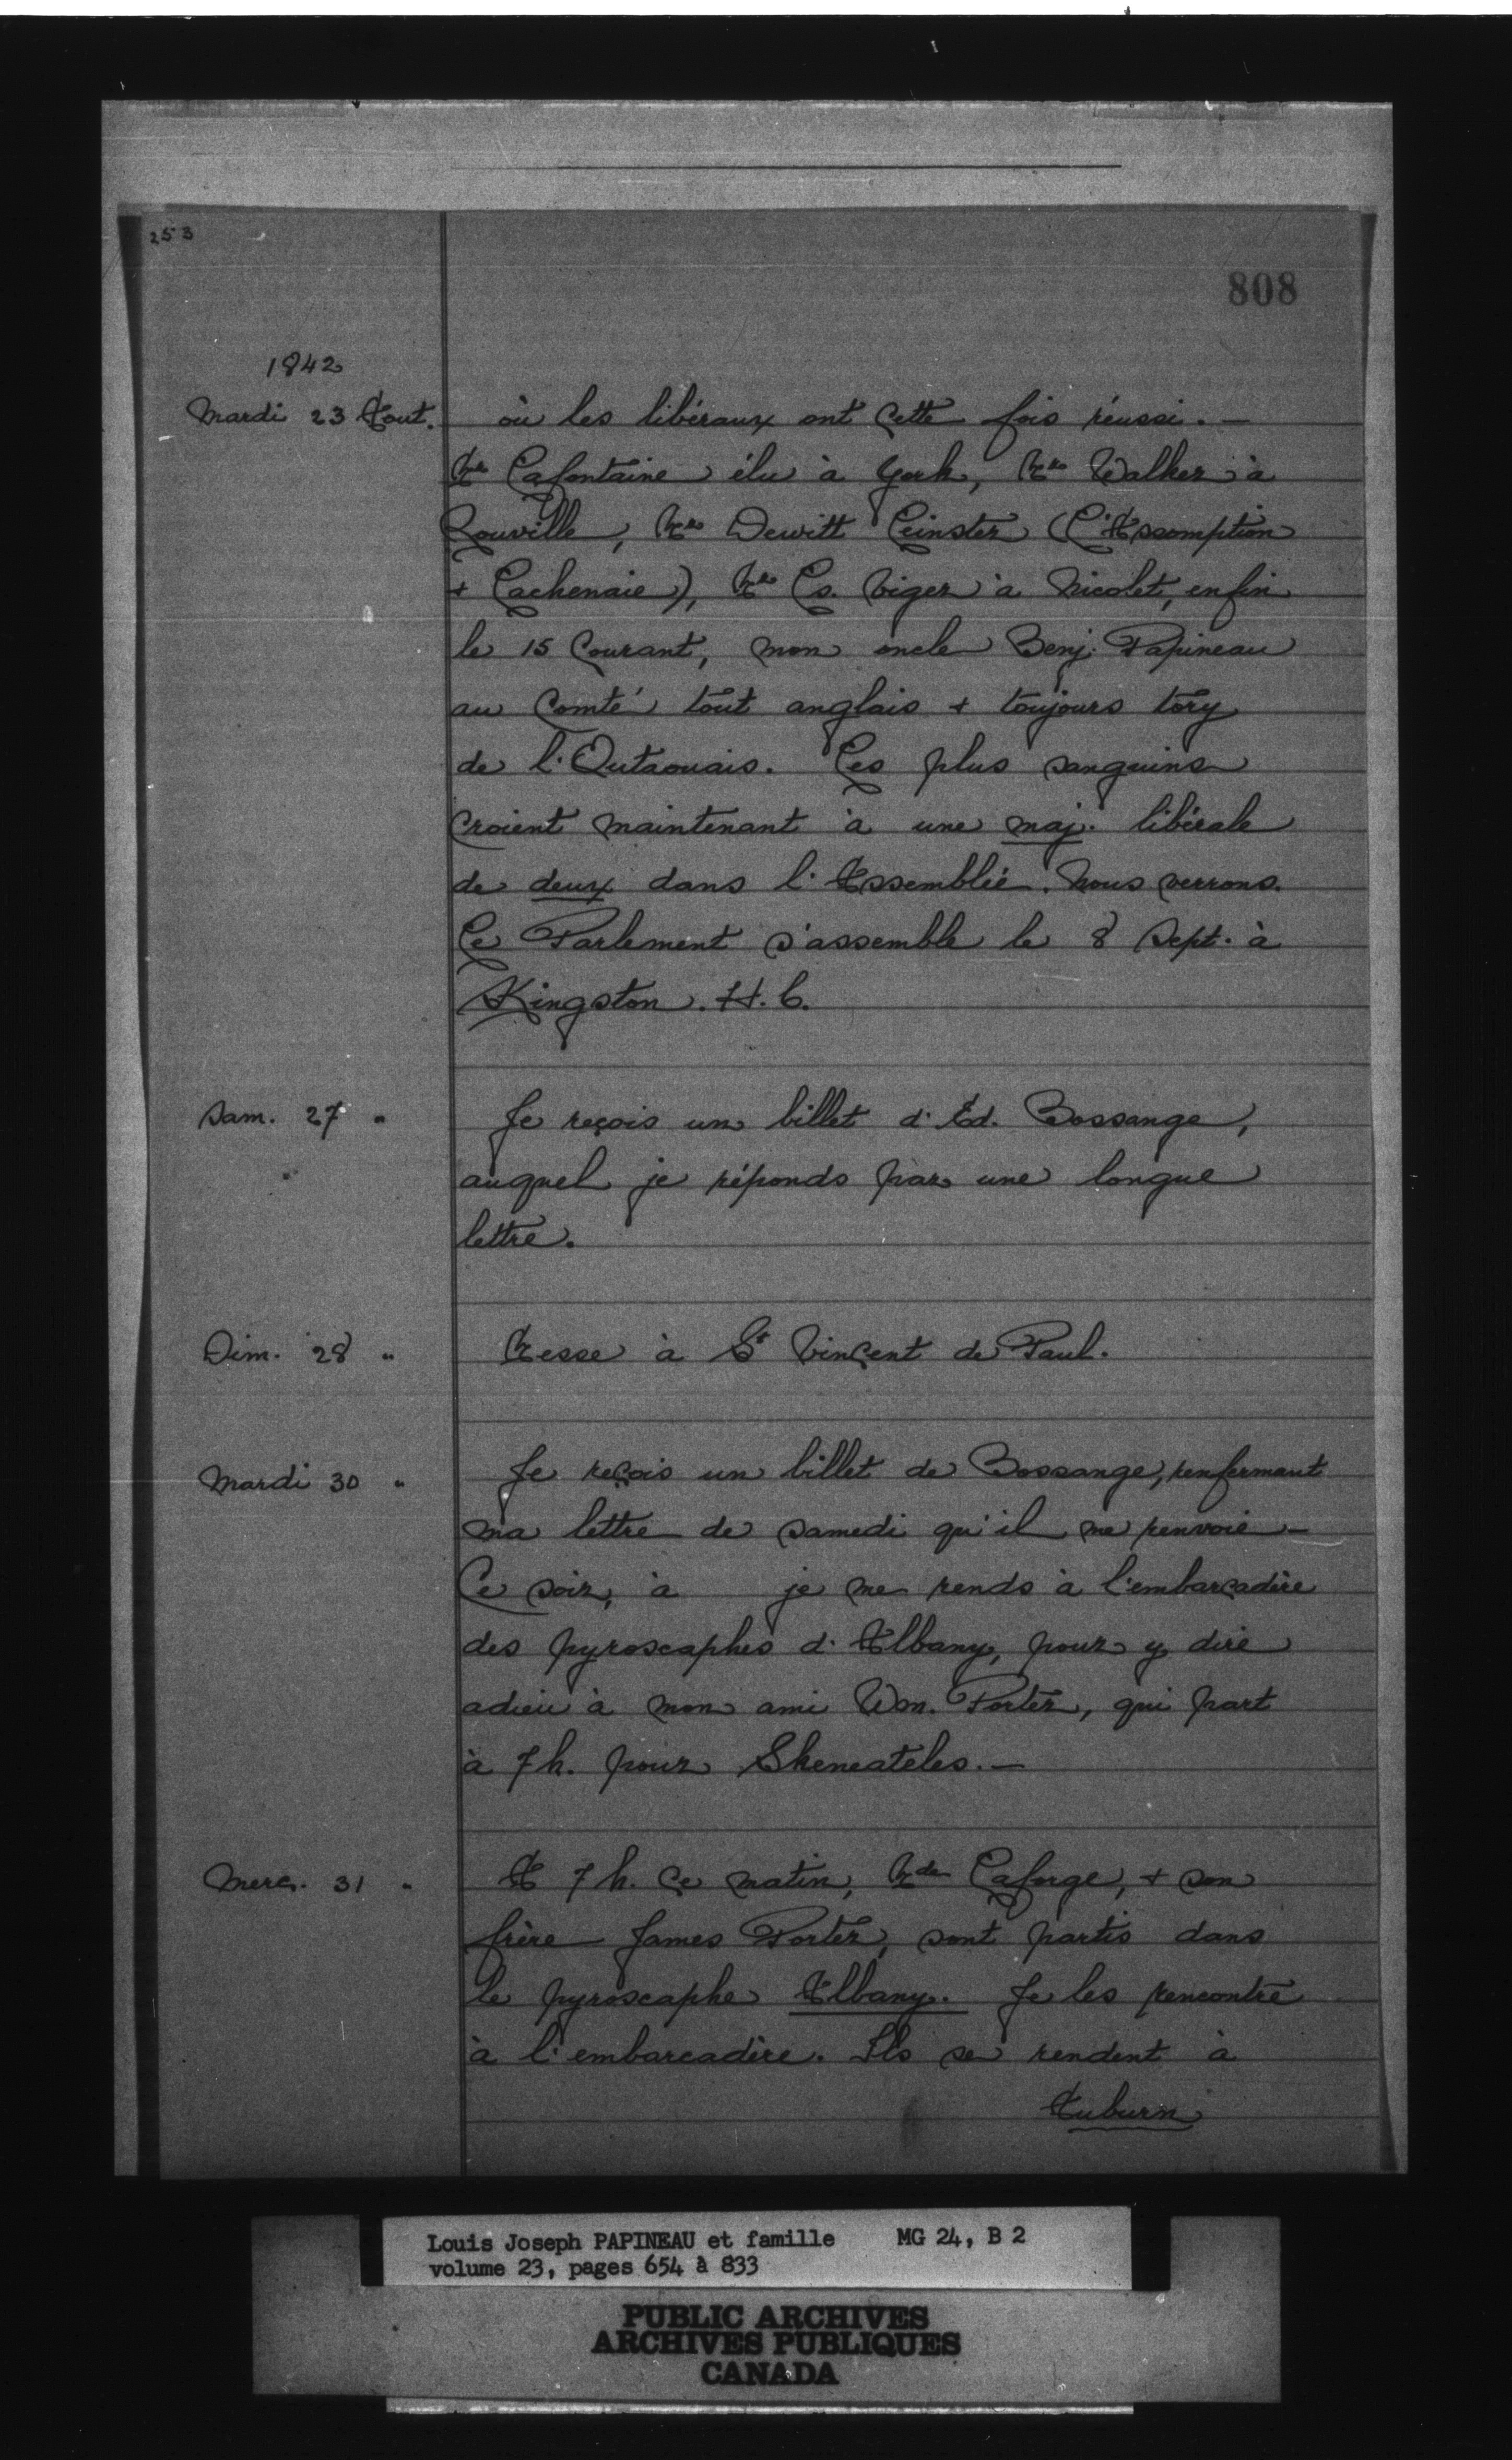 253
808
1842
Mardi 23 Aout. où les libéraux ont cette fois réussi. —
Mr Lafontaine élu à York, Mr Walker à
Rouville, Mr Dewitt Leinster (L'Assomption
+ Lachenaie), Mr Ls. Viger à Nicolet, enfin
le 15 Courant, mon oncle Benj. Papineau
au Comté tout anglais + toujours tory
de l'Outaouais. Les plus sanguins
croient maintenant à une maj. libérale
de deux dans l'Assemblée. Nous verrons.
Le Parlement s'assemble le 8 Sept. à
Kingston. H. C.
Sam. 27 " Je reçois un billet d'Ed. Bossange,
auquel je réponds par une longue
lettre.
Dim. 28 " Messe à St Vincent de Paul.
Mardi 30 " Je reçois un billet de Bossange, renfermant
ma lettre de samedi qu'il me renvoie —
Ce soir, à je me rends à l'embarcadère
des pyroscaphes d'Albany, pour y dire
adieu à mon ami Wm. Porter, qui part
à 7 h. pour Skeneateles. —
Merc. 31 " A 7 h. ce matin, Mde Laforge, + son
frère James Porter, sont partis dans
le pyroscaphe Albany. Je les rencontre
à l'embarcadère. Ils se rendent à
Auburn
Louis Joseph PAPINEAU et famille MG 24, B 2
volume 23, pages 654 à 833
PUBLIC ARCHIVES
ARCHIVES PUBLIQUES
CANADA